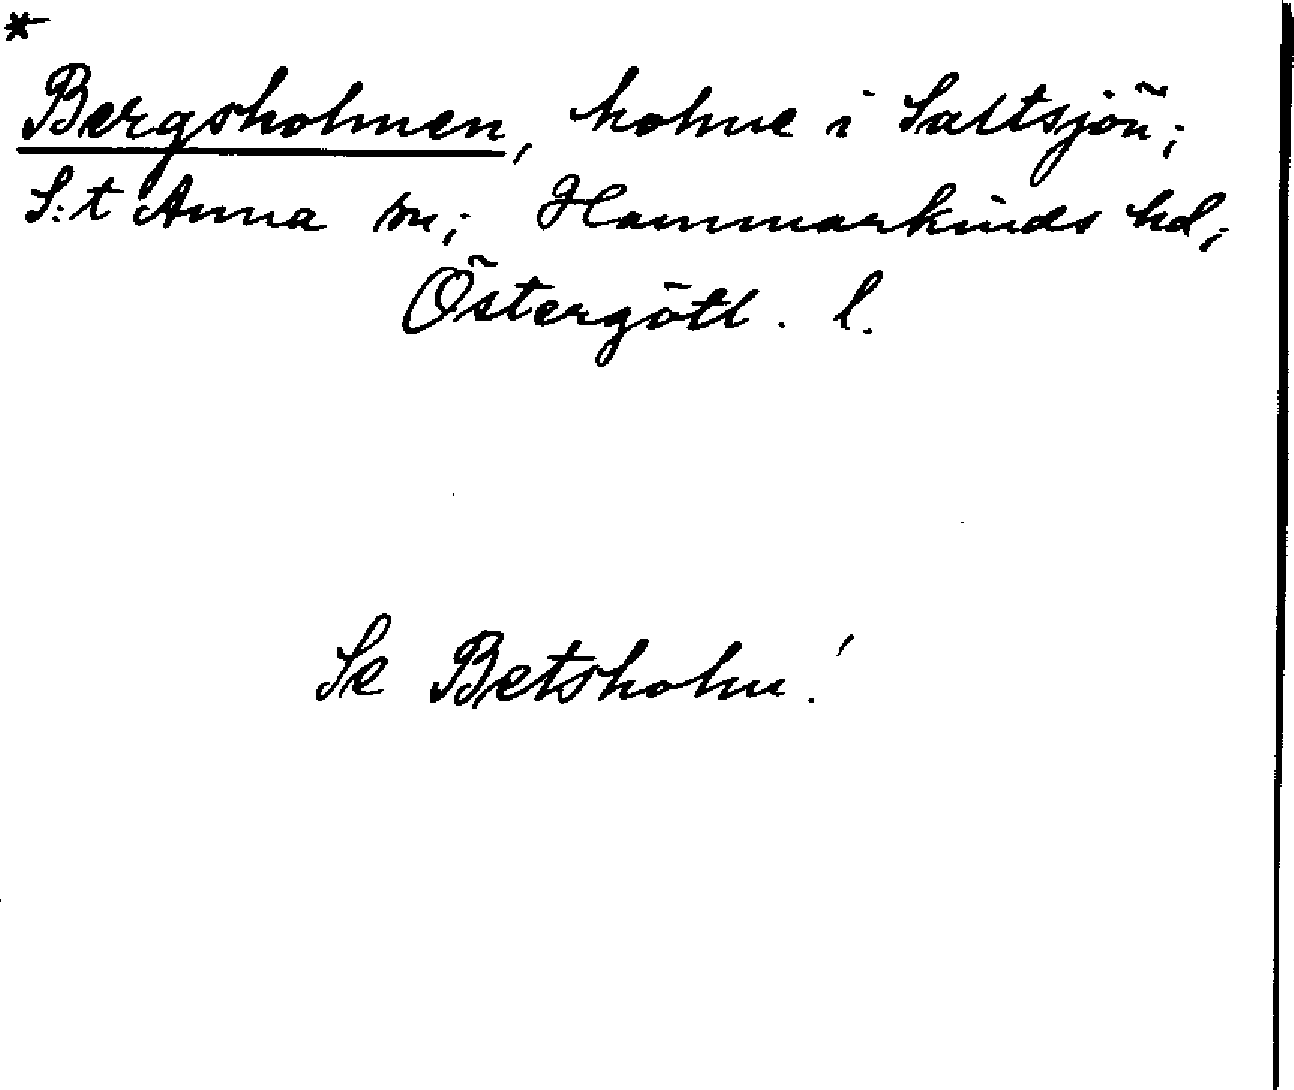 *
Bergsholmen, holme i Saltsjön;
S:t Anna sn; Hammarkinds hd;
Östergötl. l.
Se Betsholm!